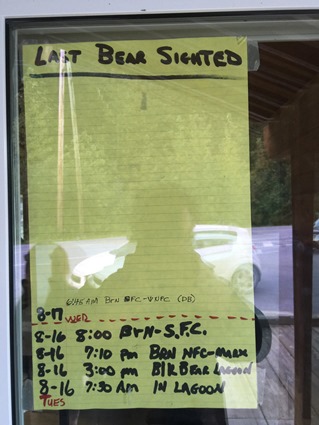 LAST BEAR SIGHTED
6:45 AM BRN NFC-WNFC (DB)
8-17 WED
8-16 8:00 BRN-S.F.C.
8-16 7:10 pm BRN NFC-MARX
8-16 3:00 pm BlK BEAR LAGOON
8-16 7:30 AM IN LAGOON
TUES